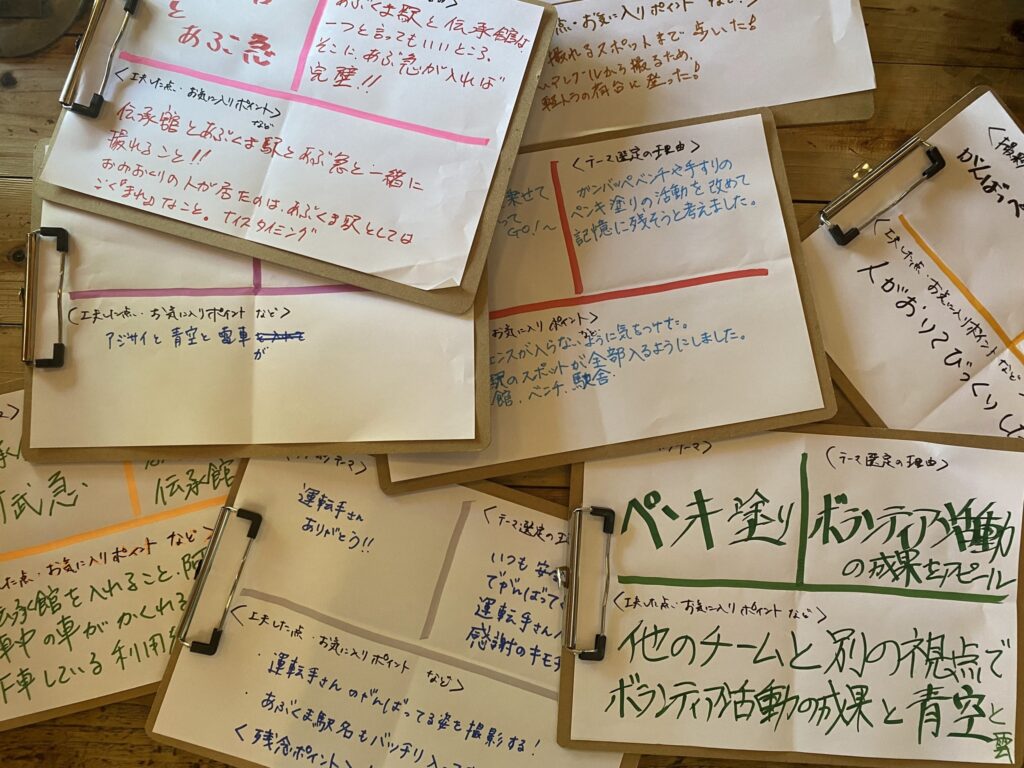 と
あぶ急
あぶくま駅と伝承館は、
一つと言ってもいいところ。
そこに、あぶ急が入れば
完璧!!
(工夫した点・お気に入りポイントなど)
伝承館とあぶくま駅とあぶ急と一緒に
撮れること!!
あぶくま駅としては
なこと。ナイスタイミング
点・お気に入りポイントなど)
撮れるスポットまで歩いた!
から撮るため、
軽トラの荷台に座った!
乗せて
って
GO!~
(テーマ選定の理由)
ガンバッペベンチや手すりの
ペンキ塗りの活動を改めて
記憶に残そうと考えました。
お気に入りポイントなど
ェンスが入らないように気をつけた。
駅のスポットが全部入るようにしました。
館、ベンチ、駅舎
(工夫した点・お気に入りポイント など)
アジサイと青空と電車
が
がんばっ
(工夫した点・お気に入りポイント など
人がおりてびっくりし
武急
伝承館
た点・お気に入りポイント など)
伝承館を入れること、
車中の車がかくれる
下車している利用
テーマ)
運転手さん
ありがとう!!
(テーマ選定の
いつも安
でがんばって
運転手さん
感謝のキモチ
(工夫した点・お気に入りポイント など)
・運転手さんのがんばってる姿を撮影する!
・あぶくま駅名もバッチリ入って
(残念ポイント
テーマ)
ペンキ塗り
(テーマ選定の理由)
ボランティア活動
の成果をアピール
(工夫した点・お気に入りポイント など)
他のチームと別の視点で
ボランティア活動の成果と青空と
雲